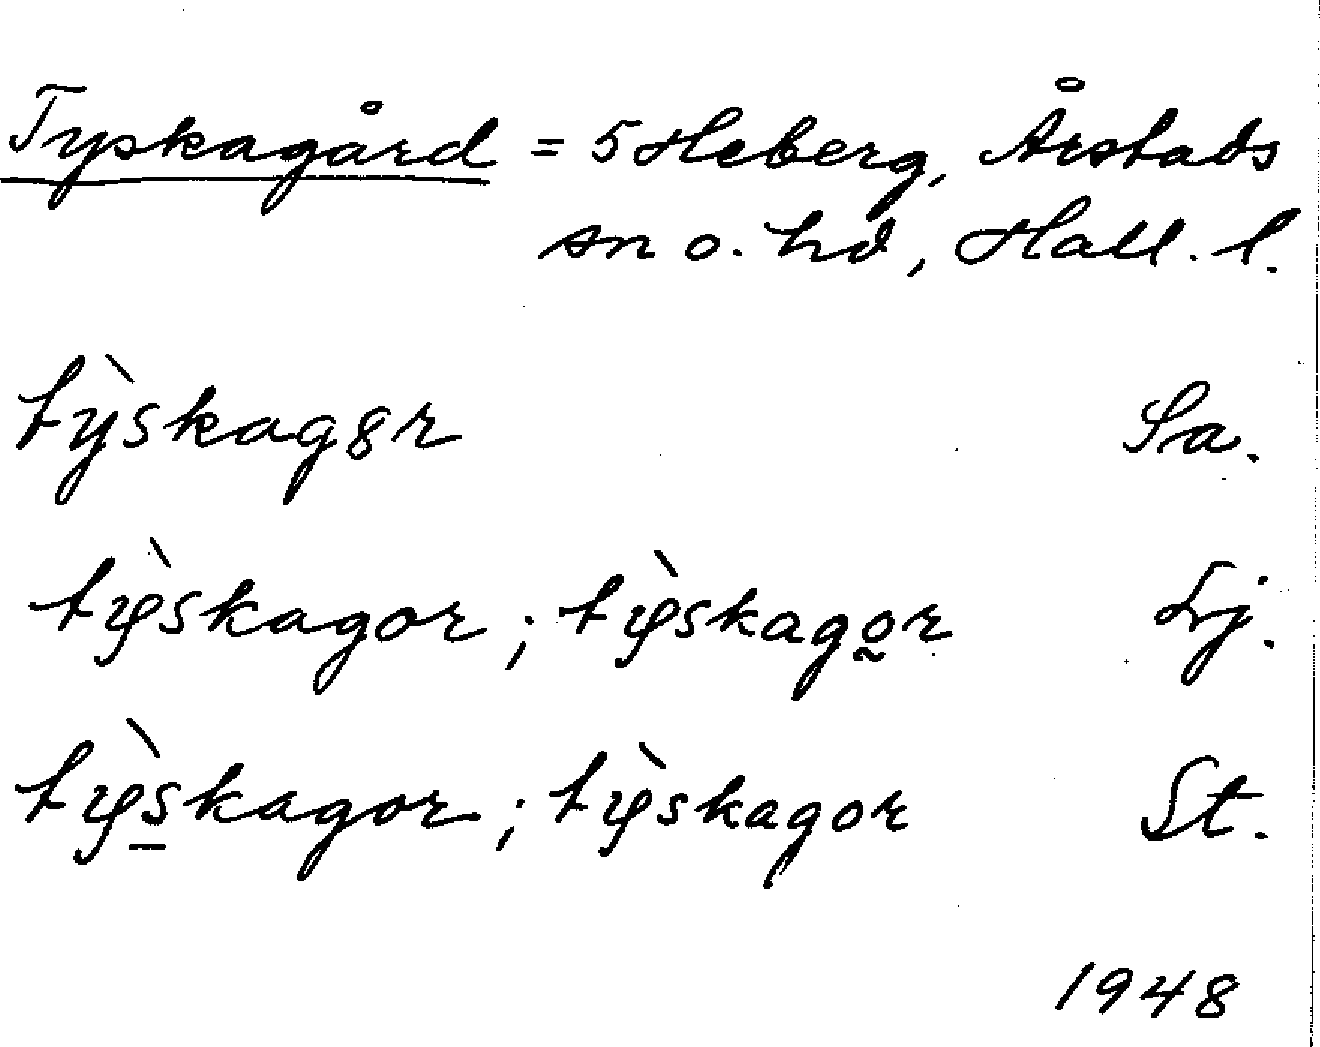 Tyskagård = 5 Heberg, Årstads
sn o. hd, Hall. l.
tỳskag8r Sa.
tỳskagor ; tỳskago̰r Lj.
tỳs̲kagor ; tỳskagor St.
1948